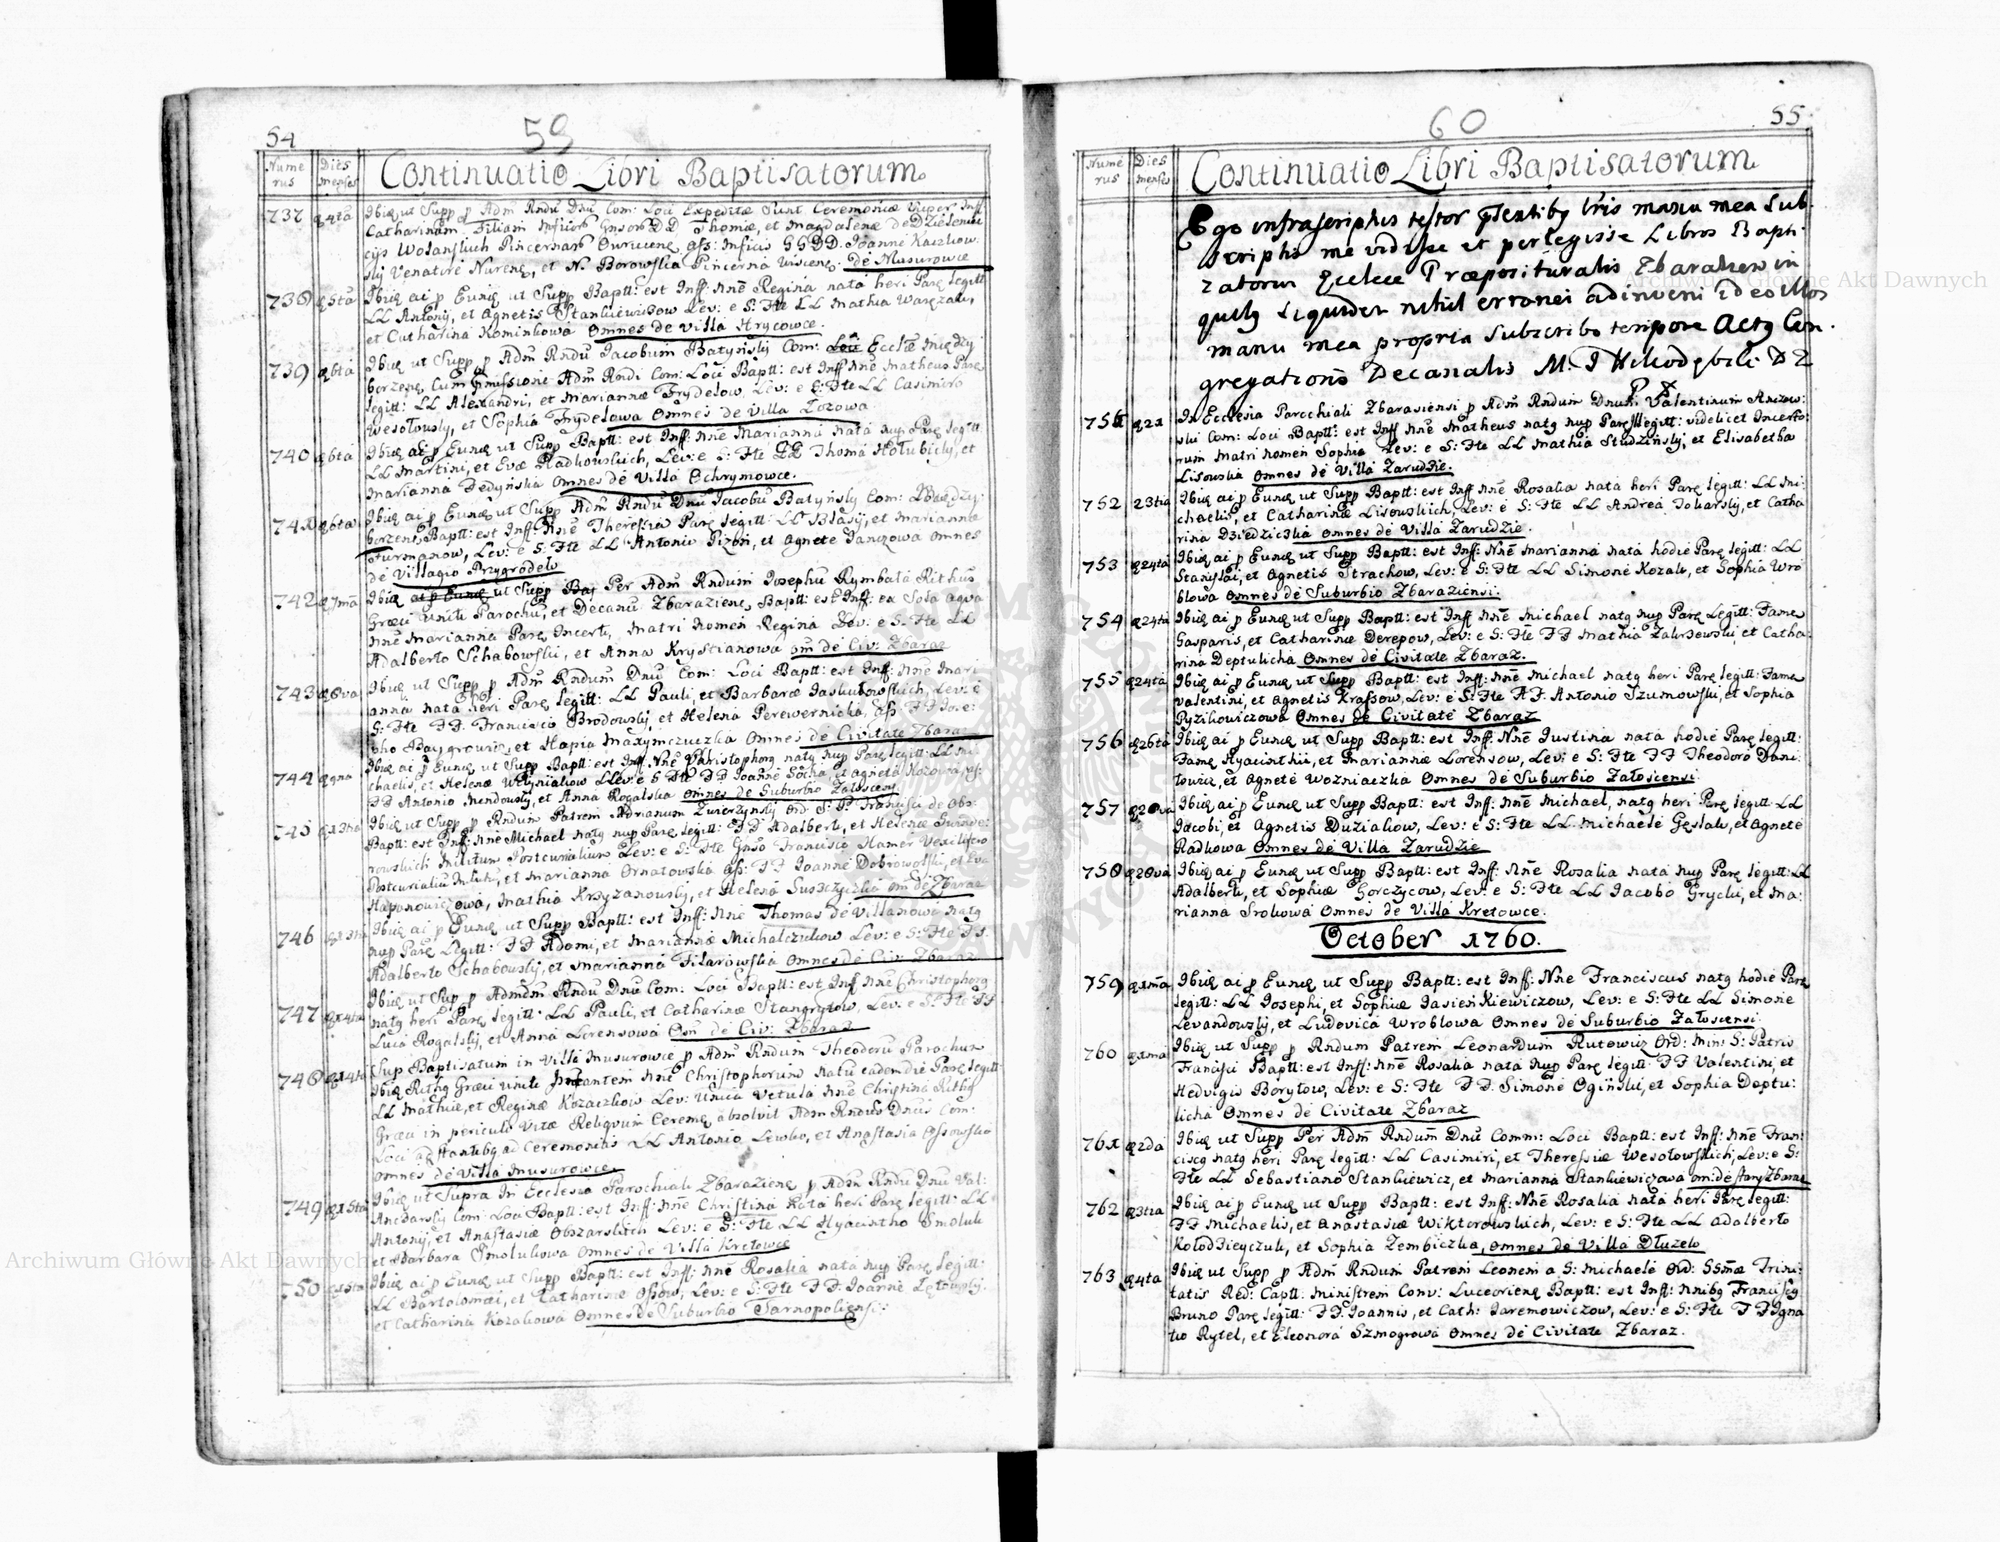 54
59
Nume
rus
Dies
menses
Continuatio Libri Baptisatorum.
737 q4ta Ibiq ut Supp p Adm Rndu Dnu Com: Loci Expeditæ Sunt Ceremoniæ Super Inff
Catharinam Filiam D D Thomæ, et Magdalenæ de Dzielenici
cijs Wolanskich Pincernar Owrucen ass: Inficis G G D D. Joanne Kaczkow.
skij Venatore Nuren, et N. Borowska Pincerna Viscen. de Musurowce
738 q5ta Ibiq ai p Eunq ut Supp Baptt: est Inff: Nne Regina nata heri Parq legitt
LL Antonij, et Agnetis Stankiewiczow Lev: e S: Fte LL Mathia Warezak,
et Catharina Kominkowa Omnes de Villa Hrycowce.
739 q6ta Ibiq ut Supp p Adm Rndu Jacobum Batynskij Com: Loci Ecctæ Miedzy
borzenq, Cum pmissione Adm Rndi Com: Loci Baptt: est Inff Nne Matheus Parq
legitt: LL Alexandri, et Mariannæ Frydelow, Lev: e S: Fte LL Casimiro
Wesołowskij, et Sophia Frydelowa Omnes de Villa Łozowa.
740 q6ta Ibiq ai p Eunq ut Supp Baptt: est Inff: Nne Marianna nata nup Parq legitt
LL Martini, et Evæ Radkowskich, Lev: e S: Fte LL Thoma Hołubicki, et
Marianna Dedynska Omnes de Villa Ochrymowce.
741 q6ta Ibiq ai p Eunq ut Supp Adm Rndu Dnu Jacobu Batynskij Com: Miedzy:
borzens Baptt: est Inff: Nne Theressia Parq legitt: LL Blasij, et Marianna
Furmanow, Lev: e S: Fte LL Antonio Pizon, et Agnete Janczowa Omnes
de Villagio Przygrodek
742 q7ma Ibiq ai p Eunq ut Supp Bap Per Adm Rndum Josephu Rymbała Rithus
Græci Uniti Parochu, et Decanu Zbarazienq, Baptt: est Inff: ex Sola aqva
Nne Marianna Parq Incert, Matri Nomen Regina Lev: e S: Fte LL
Adalberto Schabowski, et Anna Krystianowa om de Civ: Zbaraz
743 q8va Ibiq ut Supp p Adm Rndum Dnu Com: Loci Baptt: est Inff: Nne Mari
anna nata heri Parq legitt: LL Pauli, et Barbaræ Jaskułowskich, Lev: e
S: Fte F F. Francisco Brodowskij, et Helena Perewernicka, ass F F Jose:
pho Baygrowic, et Hapia Maxymczuczka Omnes de Civitate Zbaraz
744 q9na Ibiq ai p Eunq ut Supp Baptt: est Inff: Nne Christophorq natq nup Parq legitt: LL Mi
chaelis, et Helenæ Wozniakow Lev: e S Fte F F Joanne Socha, et Agneta Kozowa, ass:
F F Antonio Mendowskij, et Anna Rogalska Omnes de Suburbio Załoscens
745 q13tia Ibiq ut Supp p Rndum Patrem Adrianum Zwierzynskij Ord: S: P: Francisci de Obs:
Baptt: est Inff: Nne Michael natq nup Parq legitt: F F Adalberti, et Helenæ
rowskich Militum Postcurialium Lev: e S: Fte Gnso Francisco Hamer Vexilifero
Postcurialiu Militu, et Marianna Ornatowska ass: F F Joanne Dobrowolski, et Eva
Hapanowiczowa, Mathia Krzyzanowskij, et Helena Suszczycka om de Zbaraz
746 q13tia Ibiq ai p Eunq ut Supp Baptt: est Inff: Nne Thomas de Villanowa natq
nup Parq legitt: F F Adami, et Mariannæ Michalczukow Lev: e S: Fte F F.
Adalberto Schabowskij, et Marianna Filarowska Omnes de Civ: Zbaraz
747 q14ta Ibiq ut Sup p Adm Rndu Dnu Com: Loci Baptt: est Inff Nne Christophorq
natq heri Parq legitt: LL Pauli, et Catharinæ Stangrytow, Lev: e S: Fte F F
Luca Rogalskij, et Anna Lorensowa Om de Civ: Zbaraz
748 q14ta Sup Baptisatum in Villa Musurowce p Adm Rndum Theodoru Parochum
Ibiq Rithq Græci Unite Infantem Nne Christophorum Natu eadem die Parq legitt
LL Mathiæ, et Reginæ Kozaczkow Lev: Unica Vetula Nne Christina Rithq
Græci in periculo Vitæ Reliqvum Ceremq absolvit Adm Rndus Dnus Com:
Loci astantibq ad Ceremonias LL Antonio Lewko, et Anastasia Ossowska
Omnes de Villa Musurowce
749 q15ta Ibiq ut Supra In Ecclesia Parochiali Zbarazienq p Adm Rndu Dnu Val:
Anczarskij Com: Loci Baptt: est Inff: Nne Christina Nata heri Parq legitt: LL
Antonij, et Anastasiæ Obszarskich Lev: e S: Fte LL Hyacintho Smoluk
et Barbara Smolukowa Omnes de Villa Kretowce
750 q15ta Ibiq ai p Eunq ut Supp Baptt: est Inff: Nne Rosalia nata nup Parq legitt:
LL Bartolomæi, et Catharinæ Osow, Lev: e S: Fte F F. Joanne Zętowskij.
et Catharina Kozakowa Omnes De Suburbio Tarnopoliensi:
60
55
Nume
rus
Dies
menses
Continuatio Libri Baptisatorum.
Ego infrascriptus testor psentibq lris manu mea sub-
scriptis me vidisse et perlegisse Libros Bapti
zatorum Ecclece Præposituralis Zbarazien in
quibq siquidem nihil erronei adinveni ideo illos
manu mea propria subscribo tempore Actq Con.
gregationis Decanalis M. D Z
751 q21 In Ecclesia Parochiali Zbarasiensi p Adm Rndum Dnum Valentinum Anczar:
ski Com: Loci Baptt: est Inff Nne Matheus natq nup Parq illegitt: videlicet Incerto:
rum Matri nomen Sophia Lev: e S: Fte LL Mathia Studzinskij, et Elisabetha
Lisowska Omnes de Villa Zarudzie.
752 23tia Ibiq ai p Eunq ut Supp Baptt: est Inff Nne Rosalia nata heri Parq legitt: LL Mi:
chaelis, et Catharinæ Lisowskich, Lev: e S: Fte LL Andrea Tokarskij, et Catha
rina Dziedzicka Omnes de Villa Zarudzie.
753 q24ta Ibiq ai p Eunq ut Supp Baptt: est Inff: Nne Marianna nata hodie Parq legitt: LL
Stanislai, et Agnetis Strachow, Lev: e S: Fte LL Simone Kozak, et Sophia Wro
blowa Omnes de Suburbio Zbaraziensi:
754 q24ta Ibiq ai p Eunq ut Supp Baptt: est Inff: Nne Michael natq nup Parq legitt: Famq
Gasparis, et Catharinæ Derepow, Lev: e S: Fte F F Mathia Zakrzewski, et Catha:
rina Deptulicha Omnes de Civitate Zbaraz.
755 q24ta Ibiq ai p Eunq ut Supp Baptt: est Inff: Nne Michael natq heri Parq legitt: Famq
Valentini, et Agnetis Krassow, Lev: e S: Fte F F. Antonio Szumowski, et Sophia
Pyzikowiczowa Omnes de Civitate Zbaraz
756 q26ta Ibiq ai p Eunq ut Supp Baptt: est Inff: Nne Justina nata hodie Parq legitt:
Famq Hyacinthii, et Mariannæ Lorensow, Lev: e S: Fte F F Theodoro Dani:
towicz, et Agnete Wozniaczka Omnes de Suburbio Załoscensi
757 q28va Ibiq ai p Eunq ut Supp Baptt: est Inff: Nne Michael, natq heri Parq legitt: LL
Jacobi, et Agnetis Duziakow, Lev: e S: Fte LL Michaele Gęslak, et Agnete
Radkowa Omnes de Villa Zarudzie
758 q28va Ibiq ai p Eunq ut Supp Baptt: est Inff: Nne Rosalia nata nup Parq legitt: LL
Adalberti, et Sophiæ Gorczycow, Lev: e S: Fte LL Jacobo Gryckij, et Ma:
rianna Srokowa Omnes de Villa Kretowce.
October 1760.
759 q1ma Ibiq ai p Eunq ut Supp Baptt: est Inff: Nne Franciscus natq hodie Parq
legitt: LL Josephi, et Sophiæ Jasienkiewiczow, Lev: e S: Fte LL Simone
Levandowskij, et Ludovica Wroblowa Omnes de Suburbio Załoscensi:
760 q1ma Ibiq ut Supp p Rndum Patrem Leonardum Rutowicz Ord: Min: S: Patris
Francisci Baptt: est Inff: Nne Rosalia nata nup Parq legitt: F F Valentini, et
Hedvigis Borytow, Lev: e S: Fte F F. Simone Oginski, et Sophia Deptu:
licha Omnes de Civitate Zbaraz
761 q2da Ibiq ut Supp Per Adm Rndum Dnu Comm: Loci Baptt: est Inff: Nne Fran:
ciscq natq heri Parq legitt: LL Casimiri, et Theressiæ Wesołowskich, Lev: e S:
Fte LL Sebastiano Stankiewicz, et Marianna Stankiewiczowa om: de stary Zbaraz
762 q3tia Ibiq ai p Eunq ut Supp Baptt: est Inff: Nne Rosalia nata heri Parq legitt:
F F Michaelis, et Anastasiæ Wiktorowskich, Lev: e S: Fte LL Adalberto
Kołodzieyczuk, et Sophia Zembiczka, Omnes de Villa Dłuzek
763 q4ta Ibiq ut Supp p Adm Rndum Patrem Leonem a S: Michaele Ord: SSmæ Trini:
tatis Red: Captt: Ministrem Conv: Luceorienq Baptt: est Inff: Nnibq Franciscq
Bruno Parq legitt: F F. Joannis, et Cath: Jaremowiczow, Lev: e S: Fte F F Igna
tio Rytel, et Eleonora Szmogrowa Omnes de Civitate Zbaraz.
Archiwum Główne Akt Dawnych
Archiwum Główne Akt Dawnych